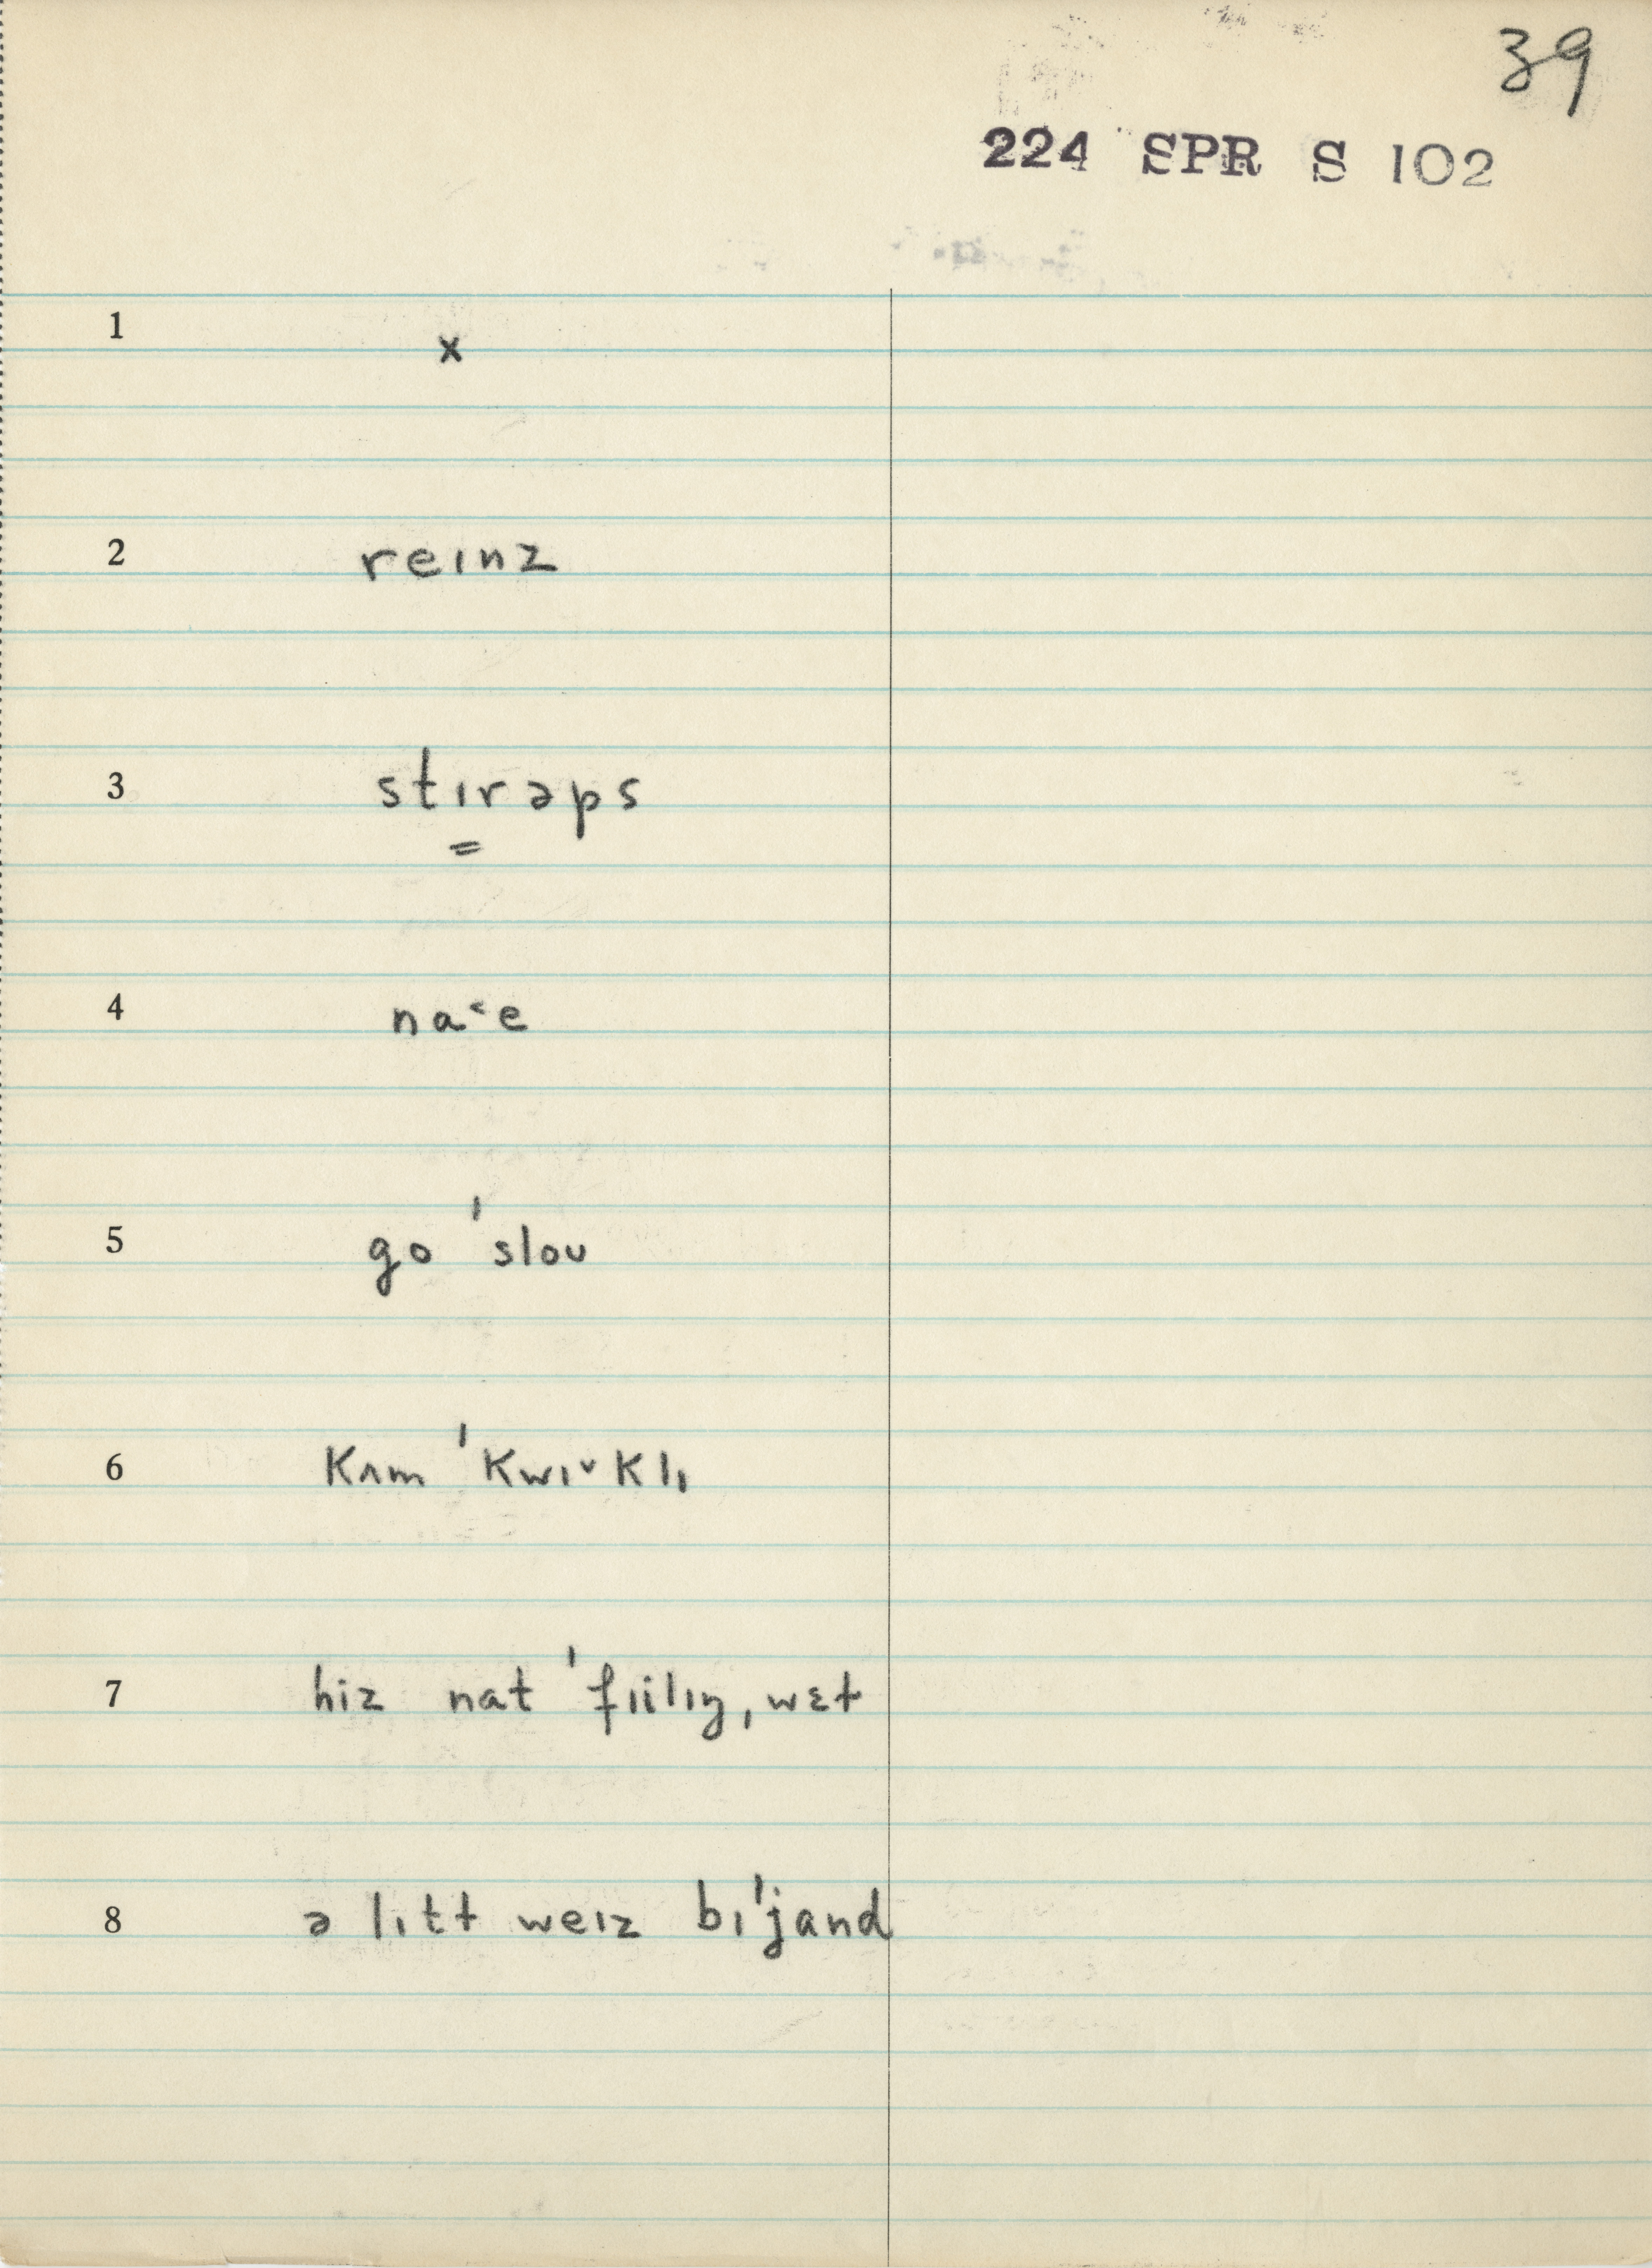 39
224 SPR S 102
1 x
2 reɪnz
3 stɪrəps
=
4 na˂e
5 go ˈsloʊ
6 kʌm ˈkwɪ˅klɪ
7 hiz nat ˈfɪilɪŋ, wɛt
8 ə lɪtt weɪz bɪˈjand